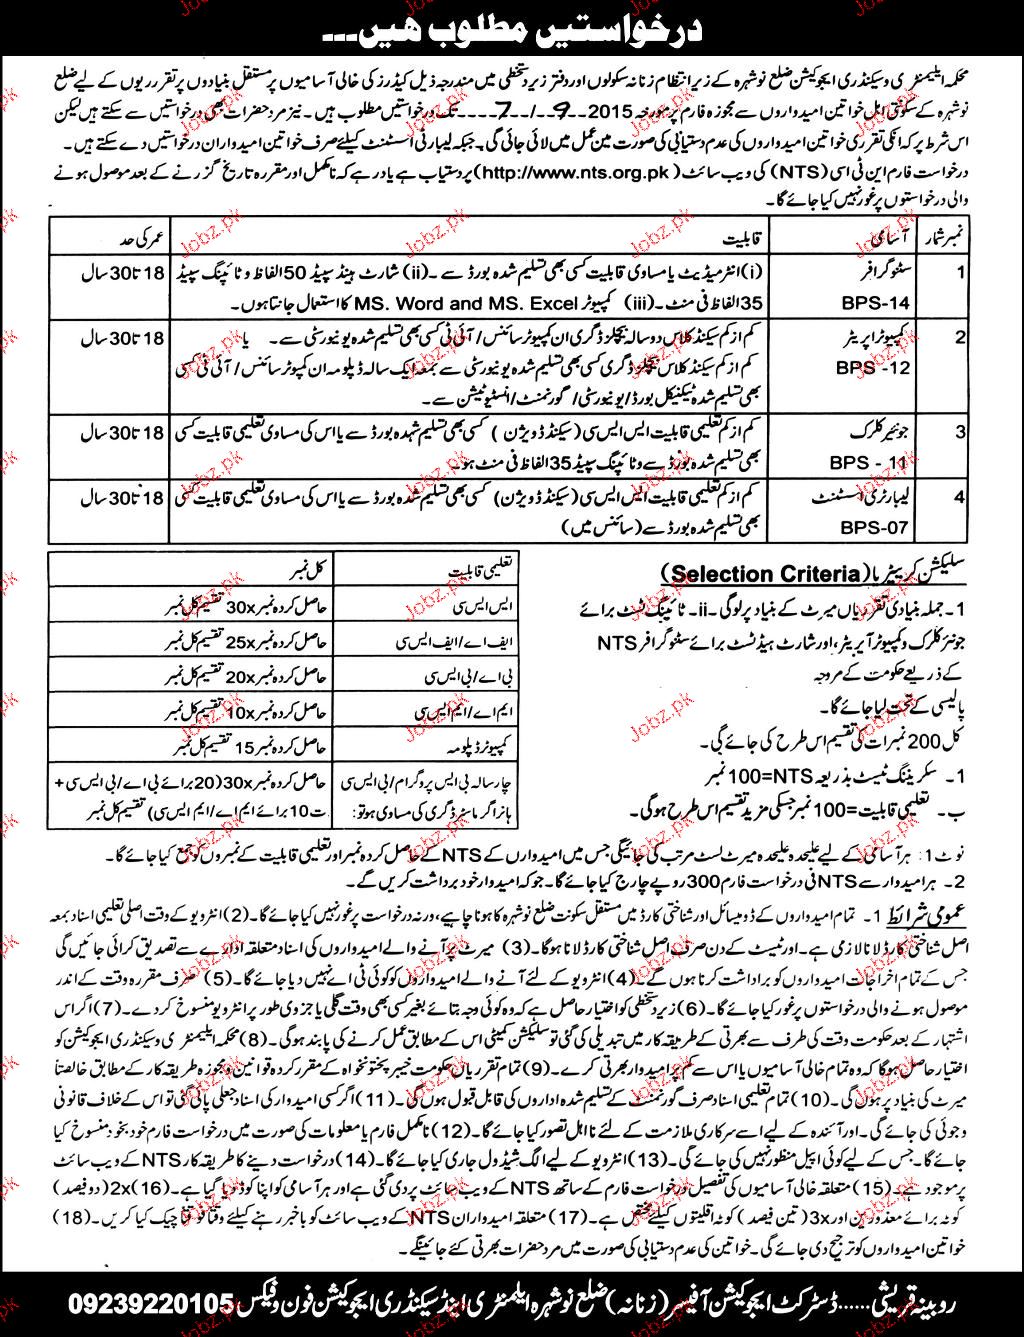 درخواستیں مطلوب ھیں---
محکمہ ایلیمنٹری و سیکنڈری ایجوکیشن ضلع نوشہرہ کے زیر انتظام زنانہ سکولوں اور دفتر زیر دستخطی میں مندرجہ ذیل کیڈرز کی خالی آسامیوں پر مستقل بنیادوں پر تقرریوں کے لیے ضلع
نوشہرہ کے سکونتی اہل خواتین امیدواروں سے مجوزہ فارم پر مورخہ 2015--9-/--7---- تک درخواستیں مطلوب ہیں۔ نیز مرد حضرات بھی درخواستیں دے سکتے ہیں لیکن
اس شرط پر کہ انکی تقرری خواتین امیدواروں کی عدم دستیابی کی صورت میں عمل میں لائی جائی گی۔ جبکہ لیبارٹی اسسٹنٹ کیلئے صرف خواتین امیدواران درخواستیں دے سکتے ہیں۔
درخواست فارم این ٹی اسی (NTS) کی ویب سائٹ (http://www.nts.org.pk) پر دستیاب ہے یاد رہے کہ نامکمل اور مقررہ تاریخ گزرنے کے بعد موصول ہونے
والی درخواستوں پر غور نہیں کیا جائے گا۔
نمبر شمار آسامی قابلیت عمر کی حد
1 سٹنوگرافر BPS-14 (i) انٹرمیڈیٹ یا مساوی قابلیت کسی بھی تسلیم شدہ بورڈ سے ۔ (ii) شارٹ ہینڈ سپیڈ 50 الفاظ و ٹائپنگ سپیڈ 18 تا 30 سال
35 الفاظ فی منٹ۔ (iii) کمپیوٹر MS. Word and MS. Excel کا استعمال جانتا ہوں۔
2 کمپیوٹر اپریٹر BPS -12 کم از کم سیکنڈ کلاس دو سالہ بیچلرز ڈگری ان کمپیوٹر سائنس/ آئی ٹی کسی بھی تسلیم شدہ یونیورسٹی سے۔ یا 18 تا 30 سال
کم از کم سیکنڈ کلاس بیچلرز ڈگری کسی بھی تسلیم شدہ یونیورسٹی سے بمعہ ایک سالہ ڈپلومہ ان کمپیوٹر سائنس/ آئی ٹی کسی
بھی تسلیم شدہ ٹیکنیکل بورڈ/ یونیورسٹی/ گورنمنٹ/ انسٹیوٹیشن سے۔
3 جونیئر کلرک BPS - 11 کم از کم تعلیمی قابلیت ایس ایس سی (سیکنڈ ڈویژن) کسی بھی تسلیم شہدہ بورڈ سے یا اس کی مساوی تعلیمی قابلیت کسی 18 تا 30 سال
بھی تسلیم شدہ بورڈ سے و ٹائپنگ سپیڈ 35 الفاظ فی منٹ ہو۔
4 لیبارٹری اسسٹنٹ BPS-07 کم از کم تعلیمی قابلیت ایس ایس سی (سیکنڈ ڈویژن) کسی بھی تسلیم شدہ بورڈ سے یا اس کی مساوی تعلیمی قابلیت کسی 18 تا 30 سال
بھی تسلیم شدہ بورڈ سے (سائنس میں)
سلیکشن کریٹیریا (Selection Criteria)
1۔ جملہ بنیادی تقرریاں میرٹ کے بنیاد پر لوگی۔ ii۔ ٹائپنگ ٹسٹ برائے
جونئر کلرک و کمپیوٹر آپریٹر، اور شارٹ ہینڈ ٹسٹ برائے سٹنوگرافر NTS
کے ذریعے حکومت کے مروجہ
پالیسی کے تحت لیا جائے گا۔
کل 200 نمبرات کی تقسیم اس طرح کی جائے گی۔
1۔ سکریننگ ٹیسٹ بذریعہ NTS=100 نمبر
ب۔ تعلیمی قابلیت=100 نمبر جسکی مزید تقسیم اس طرح ہوگی۔
تعلیمی قابلیت کل نمبر
ایس ایس سی حاصل کردہ نمبر 30x تقسیم کل نمبر
ایف اے/ ایف ایس سی حاصل کردہ نمبر 25x تقسیم کل نمبر
بی اے/ بی ایس سی حاصل کردہ نمبر 20x تقسیم کل نمبر
ایم اے/ ایم ایس سی حاصل کردہ نمبر 10x تقسیم کل نمبر
کمپیوٹر ڈپلومہ حاصل کردہ نمبر 15 تقسیم کل نمبر
چار سالہ بی ایس پروگرام/ بی ایس سی حاصل کردہ نمبر 30x (20 برائے بی اے/ بی ایس سی +
ہانرز اگر ماسٹر ڈگری کی مساوی ہو تو: ت 10 برائے ایم اے/ ایم ایس سی) تقسیم کل نمبر
نوٹ 1: ہر آسامی کے لیے علیحدہ علیحدہ میرٹ لسٹ مرتب کی جائیگی جس میں امیدواروں کے NTS کے حاصل کردہ نمبر اور تعلیمی قابلیت کے نمبروں کو جمع کیا جائے گا۔
2۔ ہر امیدوار سے NTS فی درخواست فارم 300 روپے چارج کیا جائے گا۔ جو کہ امیدوار خود برداشت کریں گے۔
عمومی شرائط 1۔ تمام امیدواروں کے ڈومیسائل اور شناختی کارڈ میں مستقل سکونت ضلع نوشہرہ کا ہونا چاہیے، ورنہ درخواست پر غور نہیں کیا جائے گا۔ (2) انٹرویو کے وقت اصلی تعلیمی اسناد بمعہ
اصل شناختی کارڈ لانا لازمی ہے۔ اور ٹیسٹ کے دن صرف اصل شناختی کارڈ لانا ہوگا۔ (3) میرٹ پر آنے والے امیدواروں کی اسناد متعلقہ ادارے سے تصدیق کرائی جائیں گی
جس کے تمام اخراجات امیدواروں کو براداشت کرنا ہوں گے۔ (4) انٹرویو کے لئے آنے والے امیدواروں کو کوئی ٹی اے نہیں دیا جائے گا۔ (5) صرف مقررہ وقت کے اندر
موصول ہونے والی درخواستوں پر غور کیا جائے گا۔ (6) زیر دستخطی کو اختیار حاصل ہے کہ وہ کوئی وجہ بتائے بغیر کسی بھی وقت کلی یا جزوی طور پر انٹرویو منسوخ کر دے۔ (7) اگر اس
اشتہار کے بعد حکومت وقت کی طرف سے بھرتی کے طریقہ کار میں تبدیلی کی گئی تو سلیکشن کمیٹی اس کے مطابق عمل کرنے کی پابند ہوگی۔ (8) محکمہ ایلیمنٹری و سیکنڈری ایجوکیشن کو
اختیار حاصل ہوگا کہ وہ تمام خالی آسامیوں یا اس سے کم پر امیدوار بھرتی کرے۔ (9) تمام تقرریاں حکومت خیبر پختونخواہ کے مقرر کردہ قوانین و مجوزہ طریقہ کار کے مطابق خالصتاً
میرٹ کی بنیاد پر ہوں گی۔ (10) تمام تعلیمی اسناد صرف گورنمنٹ کے تسلیم شدہ اداروں کی قابل قبول ہوں گی۔ (11) اگر کسی امیدوار کی اسناد جعلی پائی گئی تو اس کے خلاف قانونی
و جوئی کی جائے گی۔ اور آئندہ کے لیے اسے سرکاری ملازمت کے لئے نااہل تصور کیا جائے گا۔ (12) نامکمل فارم یا معلومات کی صورت میں درخواست فارم خود بخود منسوخ کیا
جائے گا۔ جس کے لیے کوئی اپیل منظور نہیں کی جائے گی۔ (13) انٹرویو کے لیے الگ شیڈول جاری کیا جائے گا۔ (14) درخواست دینے کا طریقہ کار NTS کے ویب سائٹ
پر موجود ہے۔ (15) متعلقہ خالی آسامیوں کی تفصیل درخواست فارم کے ساتھ NTS کے ویب سائٹ پر دی گئی ہے اور ہر آسامی کو اپنا کوڈ دیا گیا ہے۔ (16) 2x (دو فیصد)
کوٹہ برائے معذورین اور 3x (تین فیصد) کوٹہ اقلیتوں کیلئے مختص ہے۔ (17) متعلقہ امیدواران NTS کے ویب سائٹ کو باخبر رہنے کیلئے وقتاً فوقتاً چیک کیا کریں۔ (18)
خواتین امیدواروں کو ترجیح دی جائے گی۔ خواتین کی عدم دستیابی کی صورت میں مرد حضرات بھرتی کئے جائینگے۔
روبینہ قریشی......ڈسٹرکٹ ایجوکیشن آفیسر (زنانہ) ضلع نوشہرہ ایلمنٹری اینڈ سیکنڈری ایجوکیشن فون و فیکس 09239220105
Jobz.pk